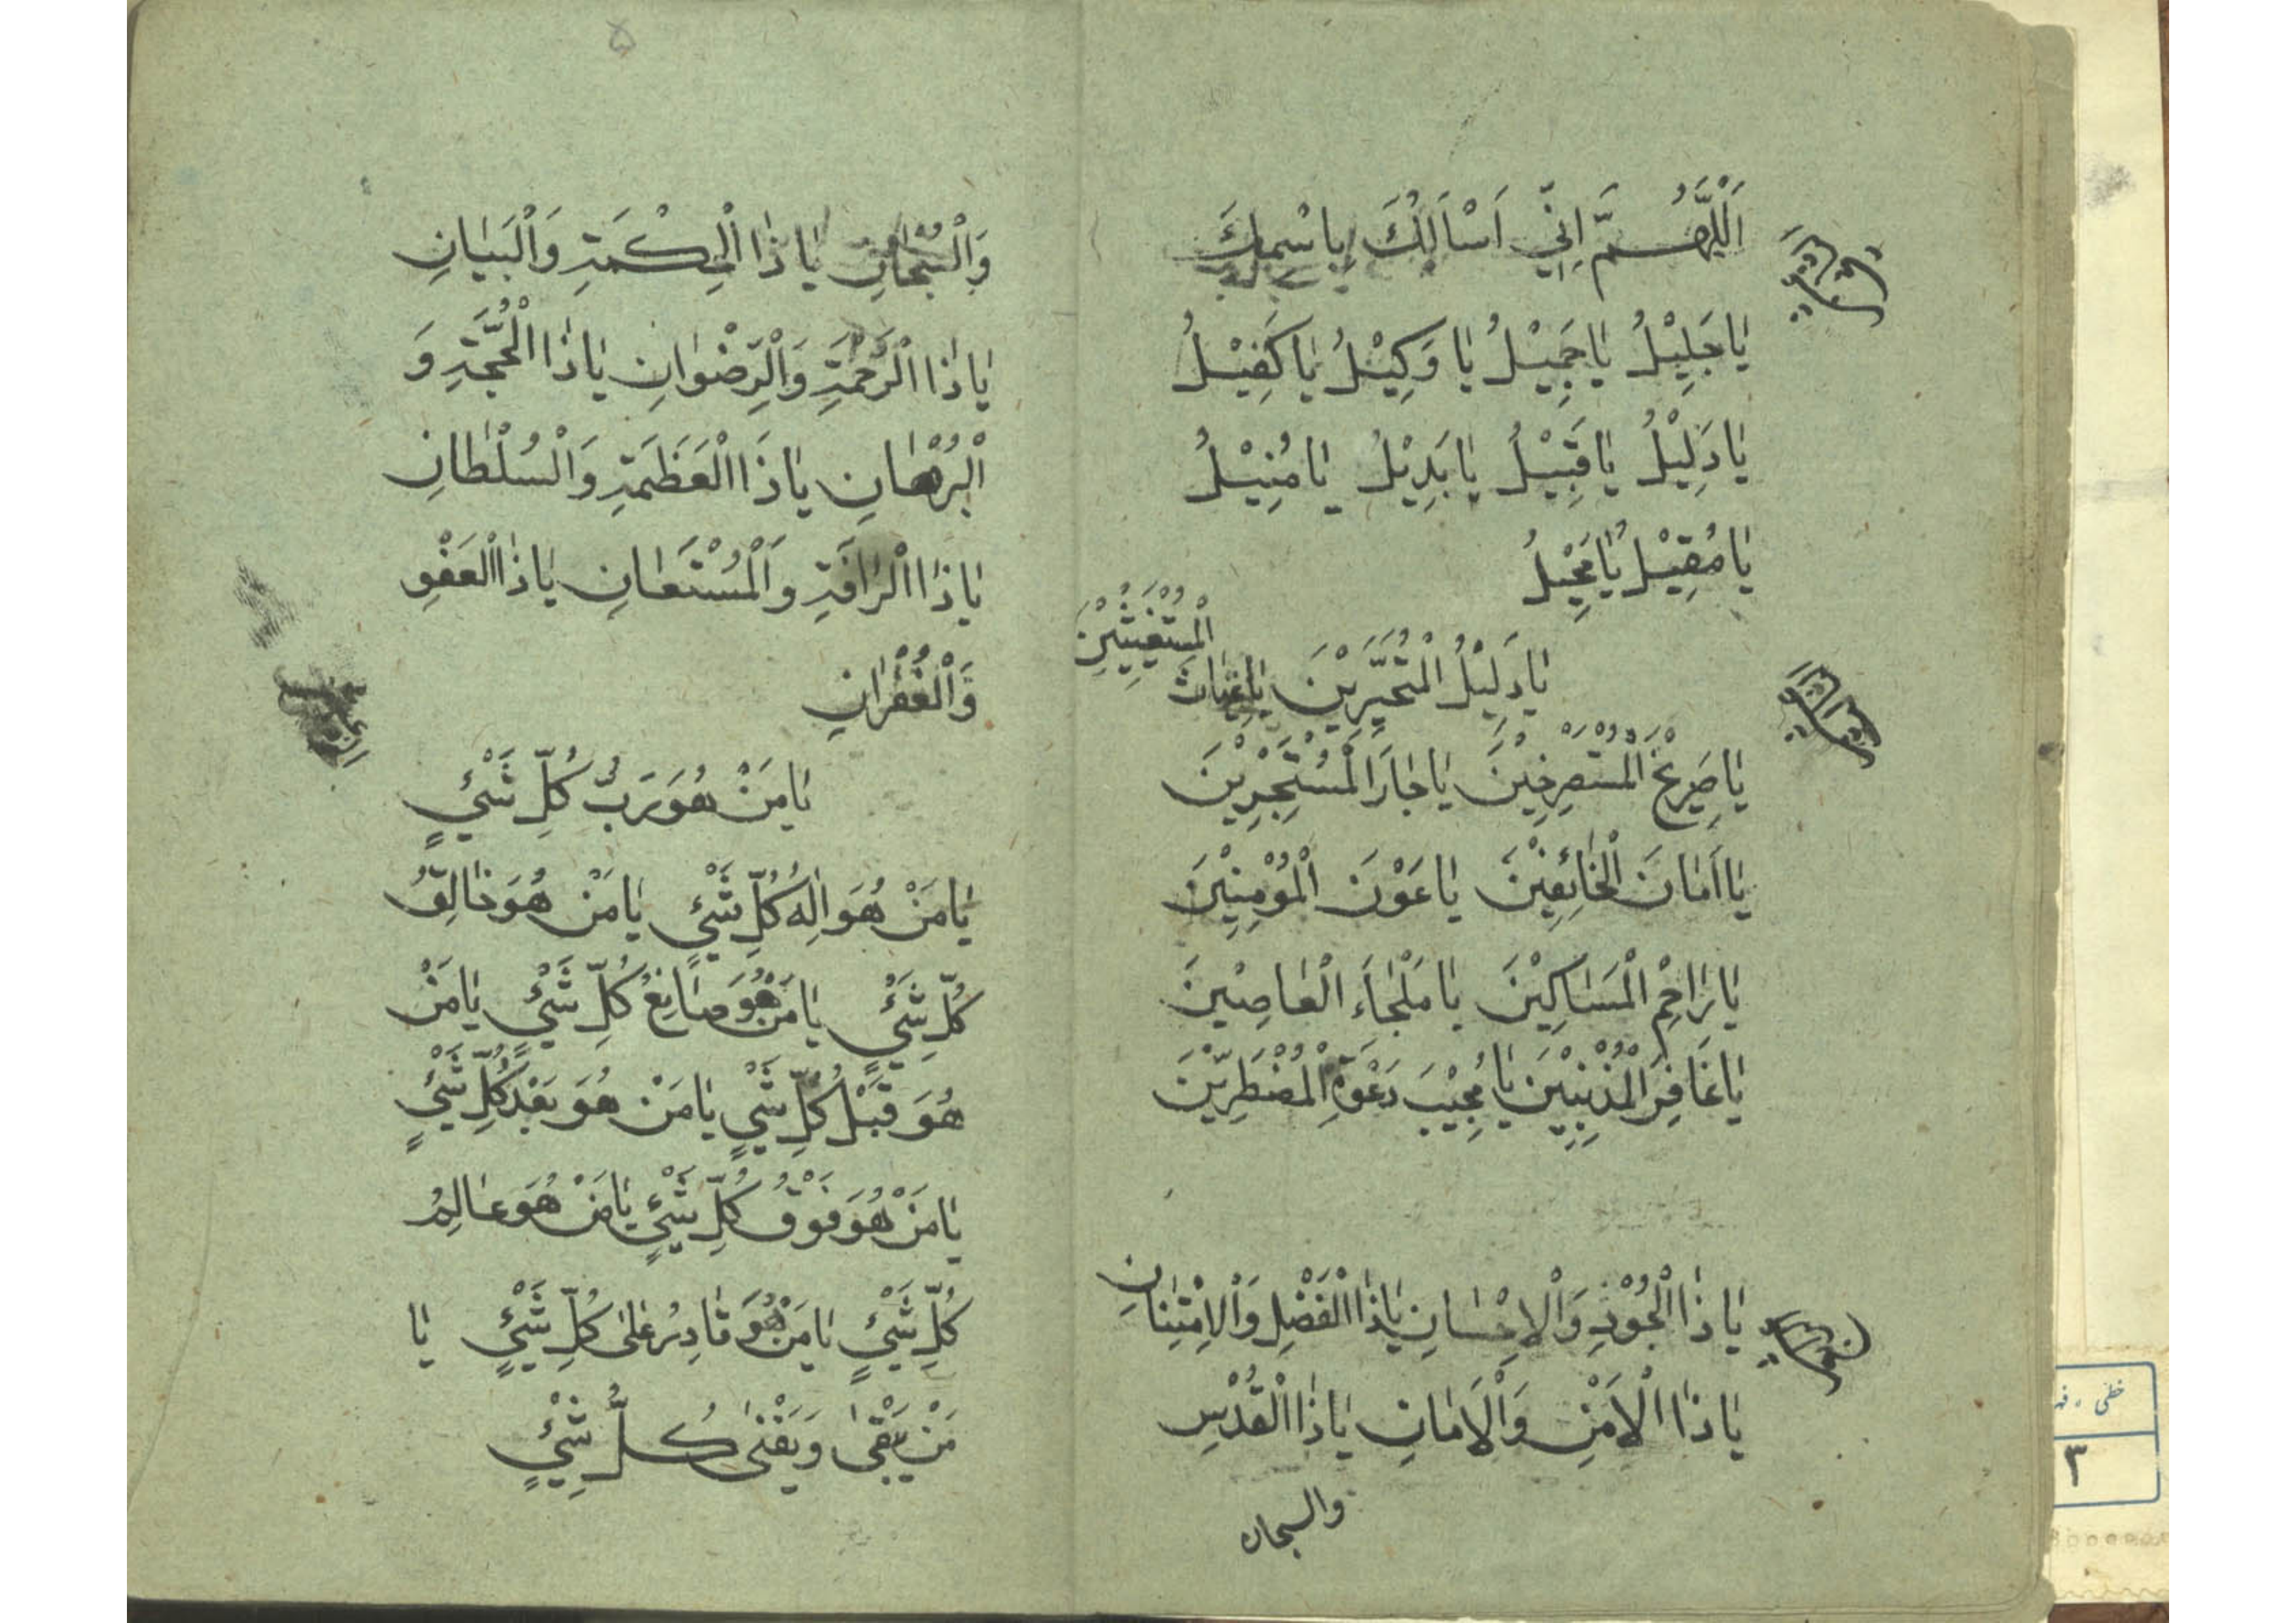 اَللّٰهُمَّ اِنّي اَسْاَلُكَ بِاسْمِكَ
يٰا جَلِيْلُ يٰا جَمِيْلُ يٰا وَكِيْلُ يٰا كَفِيْلُ
يٰا دَلِيْلُ يٰا قَبِيْلُ يٰا بَدِيْلُ يٰا مُنِيْلُ
يٰا مُقِيْلُ يٰا مُحِيْلُ
يٰا دَلِيْلَ الْمُتَحَيِّرِيْنَ يٰا غِيٰاثَ الْمُسْتَغِيْثِيْنَ
يٰا صَرِيْخَ الْمُسْتَصْرِخِيْنَ يٰا جٰارَ الْمُسْتَجِيْرِيْنَ
يٰا اَمٰانَ الْخٰائِفِيْنَ يٰا عَوْنَ الْمُؤْمِنِيْنَ
يٰا رٰاحِمَ الْمَسٰاكِيْنَ يٰا مَلْجٰاَءَ الْعٰاصِيْنَ
يٰا غٰافِرَ الْمُذْنِبِيْنَ يٰا مُجِيْبَ دَعْوَةِ الْمُضْطَرِّيْنَ
يٰا ذَا الْجُوْدِ وَالْاِحْسٰانِ يٰا ذَا الْفَضْلِ وَالْاِمْتِنٰانِ
يٰا ذَا الْاَمْنِ وَالْاَمٰانِ يٰا ذَا الْقُدْسِ
والسبحان
۵
وَالْسُبْحٰانِ يٰا ذَا الْحِكْمَةِ وَالْبَيٰانِ
يٰا ذَا الْرَحْمَةِ وَالْرِضْوٰانِ يٰا ذَا الْحُجَّةِ وَ
الْبُرْهٰانِ يٰا ذَا الْعَظَمَةِ وَالْسُلْطٰانِ
يٰا ذَا الْرَافَةِ وَالْمُسْتَعٰانِ يٰا ذَا الْعَفْوِ
وَالْغُفْرٰانِ
يٰا مَنْ هُوَ رَبُّ كُلِّ شَيْئٍ
يٰا مَنْ هُوَ اِلٰهُ كُلِّ شَيْئٍ يٰا مَنْ هُوَ خٰالِقُ
كُلِّ شَيْئٍ يٰا مَنْ هُوَ صٰانِعُ كُلِّ شَيْئٍ يٰا مَنْ
هُوَ قَبْلَ كُلِّ شَيْئٍ يٰا مَنْ هُوَ بَعْدَ كُلِّ شَيْئٍ
يٰا مَنْ هُوَ فَوْقَ كُلِّ شَيْئٍ يٰا مَنْ هُوَ عٰالِمُ
كُلِّ شَيْئٍ يٰا مَنْ هُوَ قٰادِرُ عَلىٰ كُلِّ شَيْئٍ يٰا
مَنْ يَبْقىٰ وَيَفْنىٰ كُلُّ شَيْئٍ
خطی
۳